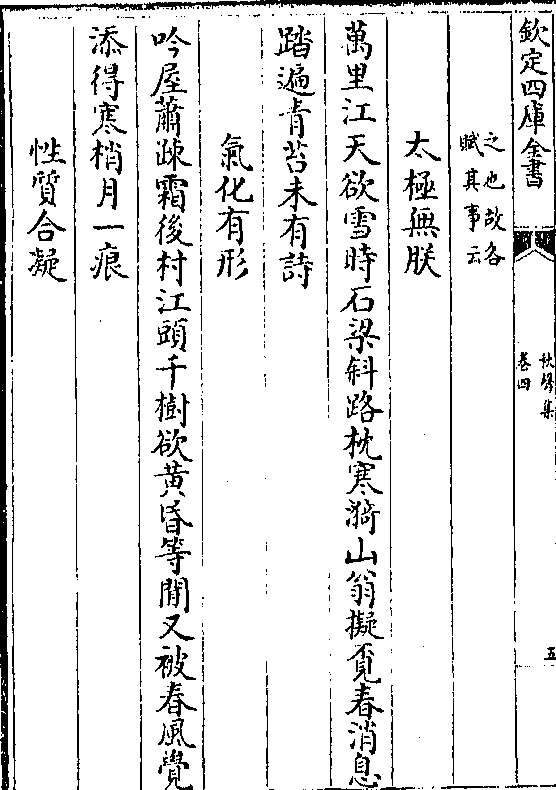 欽定四庫全書
秋聲集
卷四
五
之也故各
賦其事云
太極無朕
萬里江天欲雪時石梁斜路枕寒漪山翁擬覓春消息
踏遍青苔未有詩
氣化有形
吟屋蕭疎霜後村江頭千樹欲黄昏等閒又被春風覺
添得寒梢月一痕
性質合凝